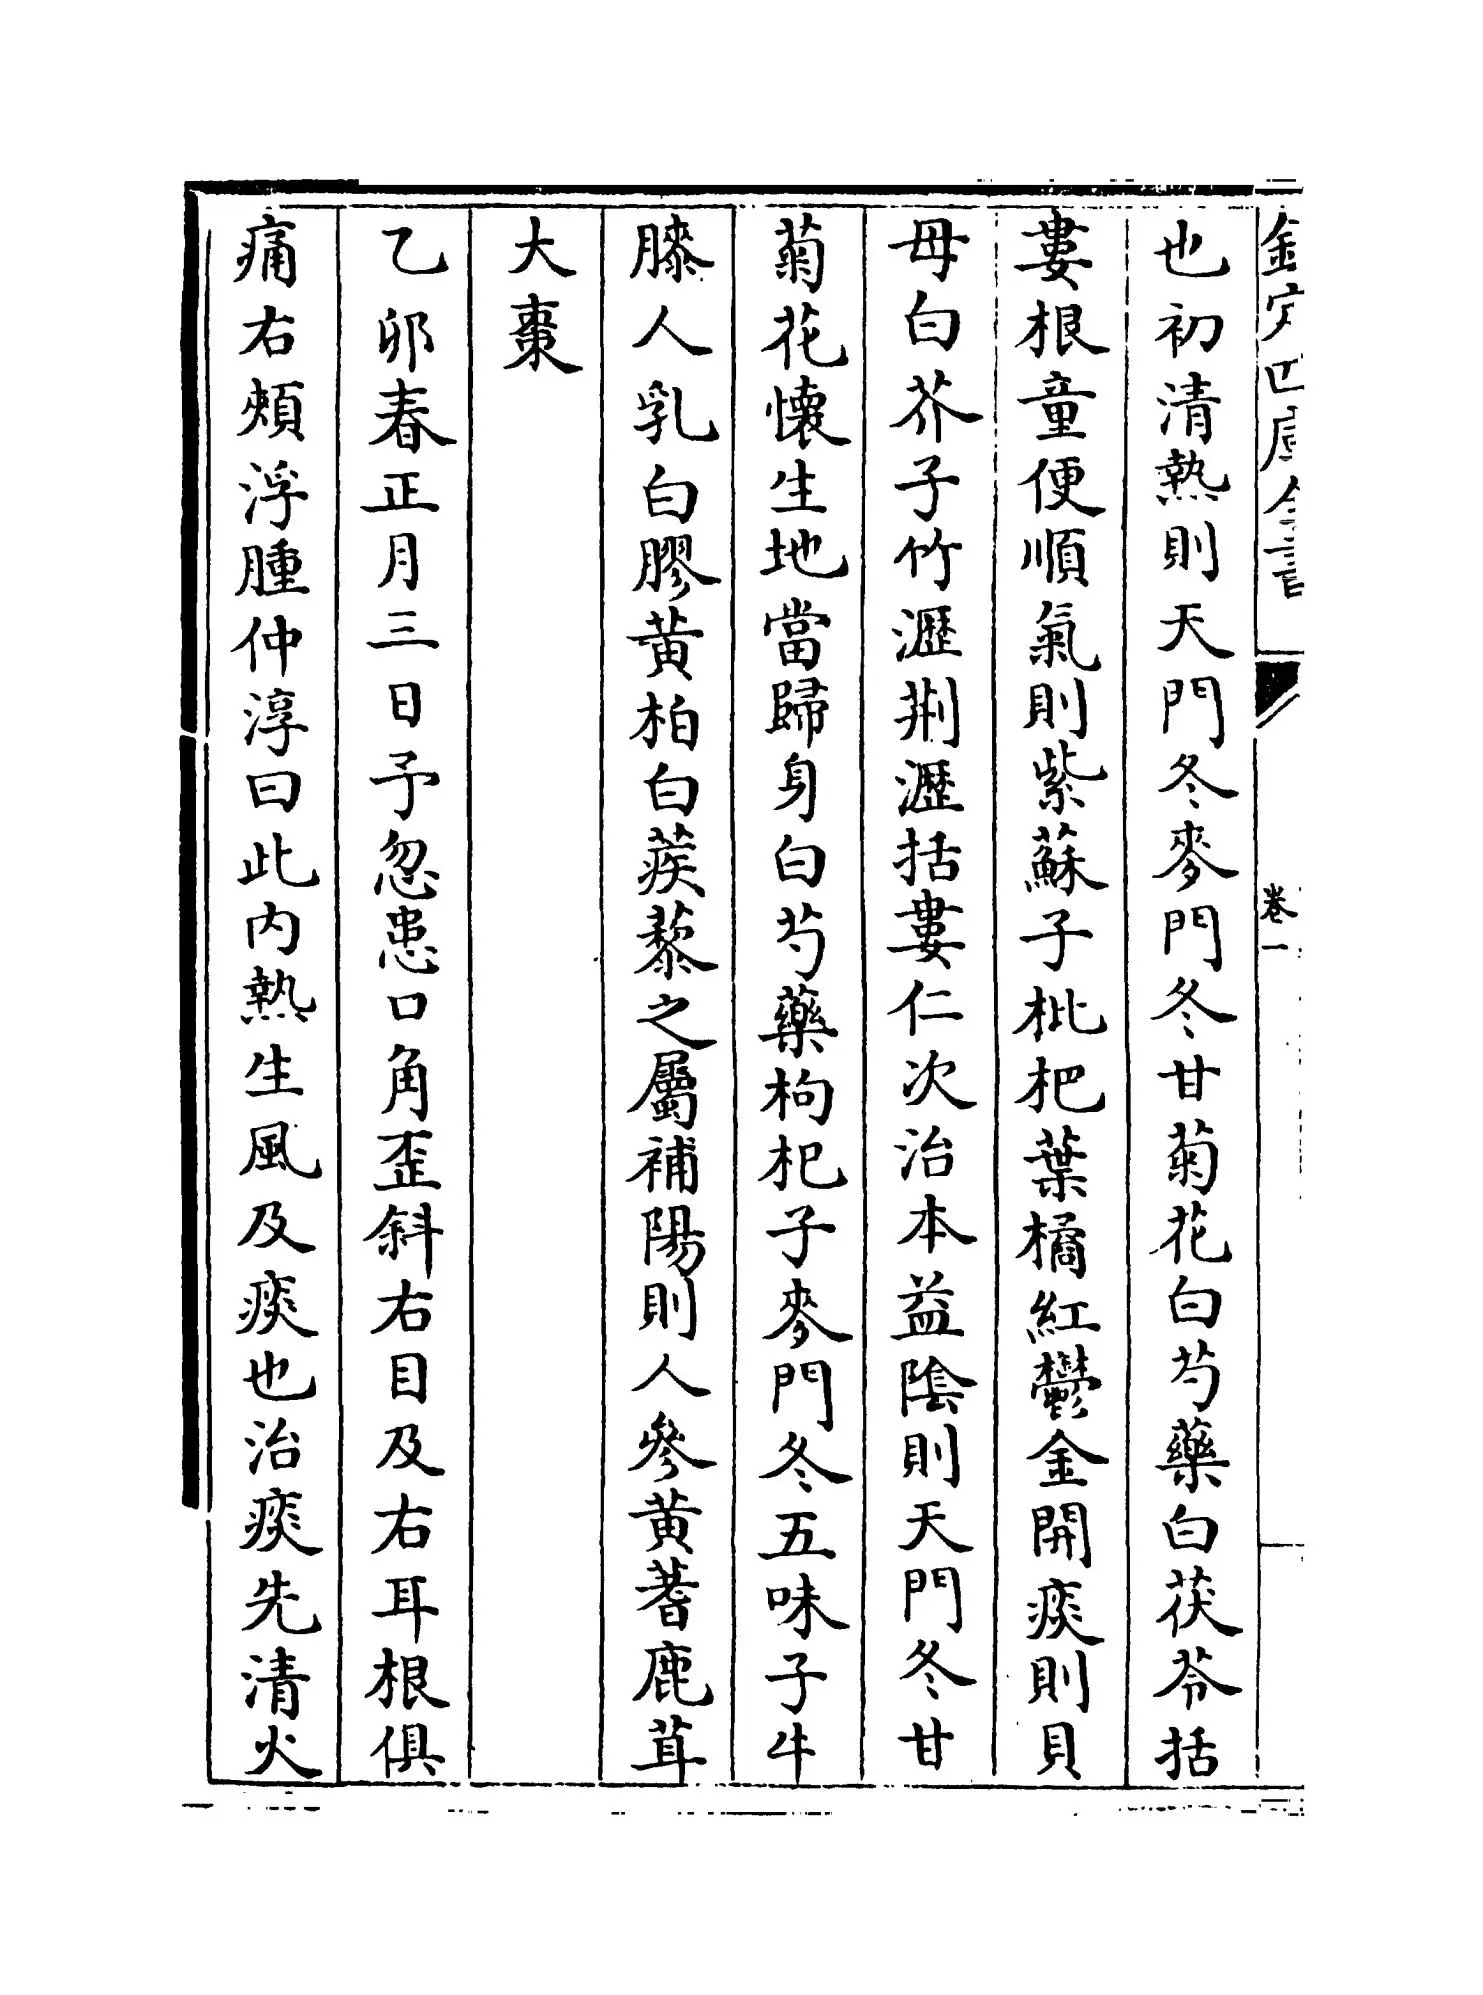 欽定四庫全書
卷一
也初清熱則天門冬麥門冬甘菊花白芍藥白茯苓括
蔞根童便順氣則紫蘇子枇杷葉橘紅鬱金開痰則貝
母白芥子竹瀝荆瀝括蔞仁次治本益陰則天門冬甘
菊花懷生地當歸身白芍藥枸杞子麥門冬五味子牛
膝人乳白膠黃柏白蒺藜之屬補陽則人參黃蓍鹿茸
大棗
乙卯春正月三日予忽患口角歪斜右目及右耳根俱
痛右頰浮腫仲淳曰此内熱生風及痰也治痰先清火